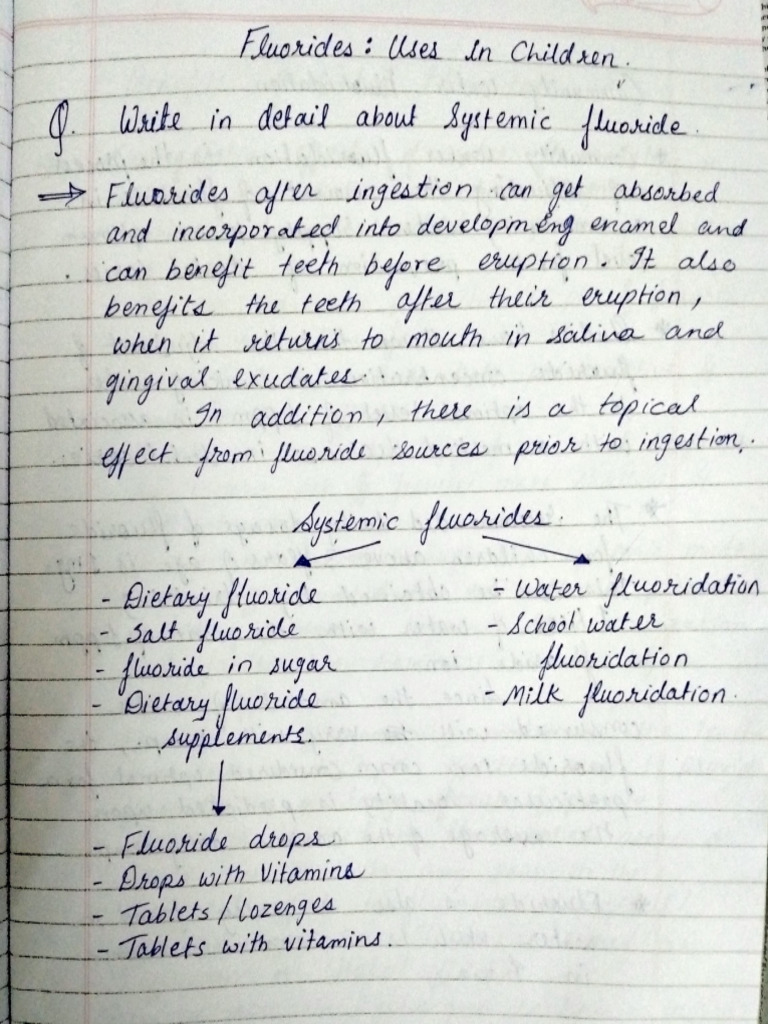 Fluorides: Uses In Children.
Q. Write in detail about Systemic fluoride.
⇒ Fluorides after ingestion can get absorbed
and incorporated into developing enamel and
can benefit teeth before eruption. It also
benefits the teeth after their eruption,
when it returns to mouth in saliva and
gingival exudates.
In addition, there is a topical
effect from fluoride sources prior to ingestion.
Systemic fluorides.
- Dietary fluoride
- Salt fluoride
- fluoride in sugar
- Dietary fluoride
supplements.
- Water fluoridation
- School water
fluoridation
- Milk fluoridation.
- Fluoride drops
- Drops with Vitamins
- Tablets / Lozenges
- Tablets with vitamins.